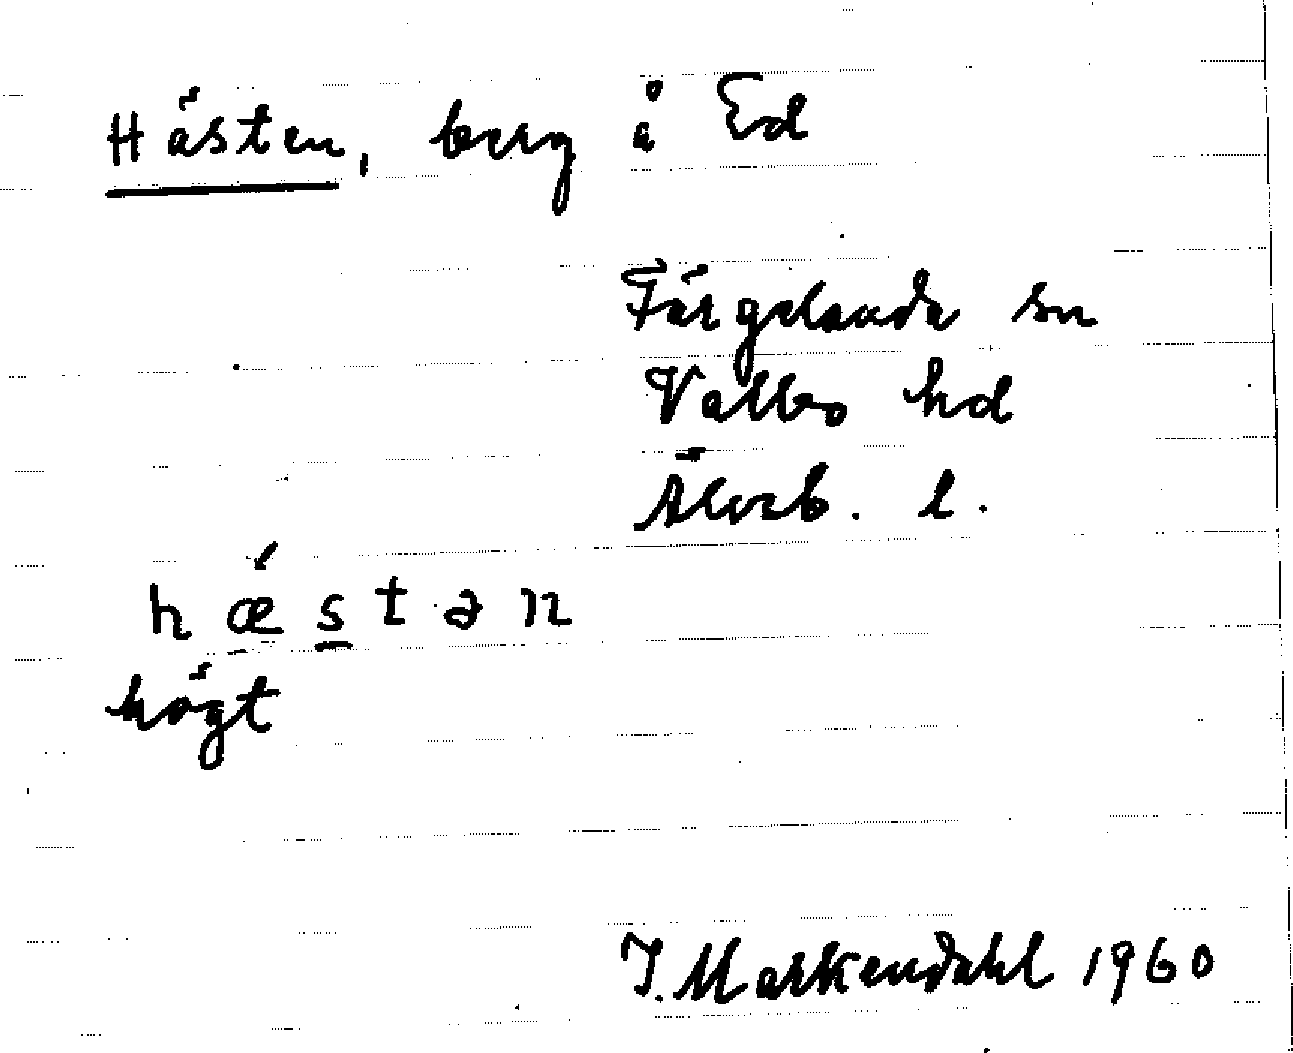 Hästen, berg å Ed
Färgelanda sn
Valbo hd
Älvsb. l.
hǽstən
högt
J. Markendahl 1960